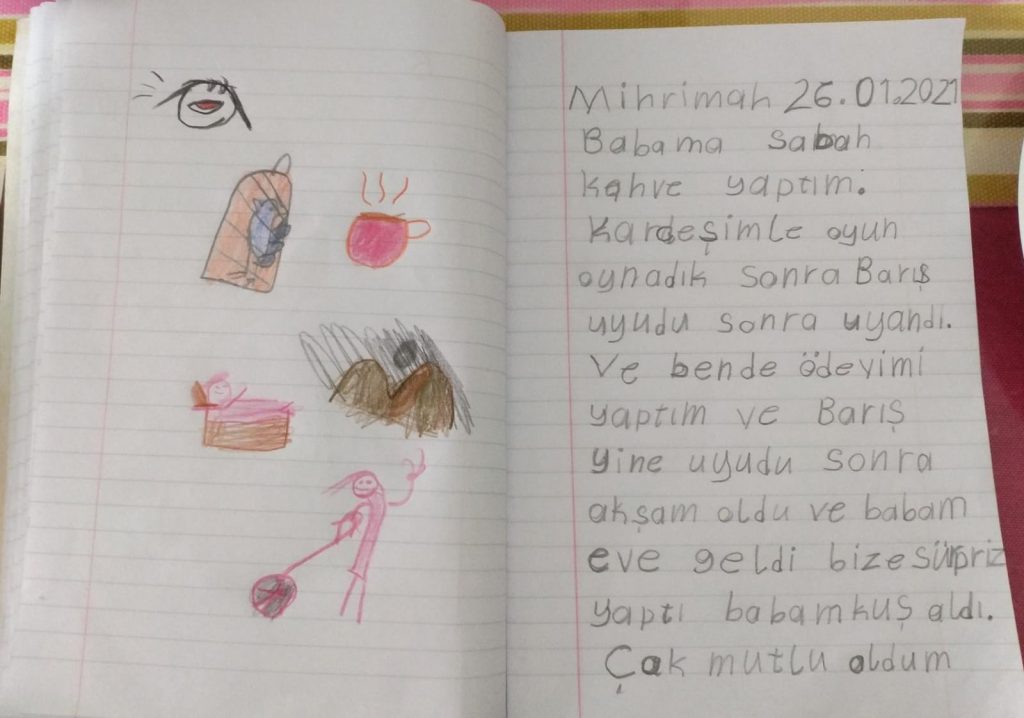 Mihrimah 26.01.2021
Babama sabah
kahve yaptım.
Kardeşimle oyun
oynadık sonra Barış
uyudu sonra uyandı.
Ve bende ödevimi
yaptım ve Barış
yine uyudu sonra
akşam oldu ve babam
eve geldi bize sürpriz
yaptı babam kuş aldı.
Çak mutlu oldum